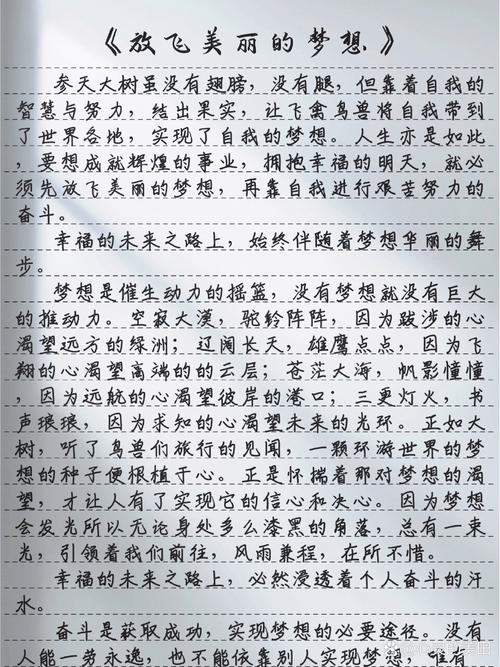 《放飞美丽的梦想》
参天大树虽没有翅膀，没有腿，但靠着自我的
智慧与努力，结出果实，让飞禽鸟兽将自我带到
了世界各地，实现了自我的梦想。人生亦是如此
，要想成就辉煌的事业，拥抱幸福的明天，就必
须先放飞美丽的梦想，再靠自我进行艰苦努力的
奋斗。
幸福的未来之路上，始终伴随着梦想华丽的舞
步。
梦想是催生动力的摇篮，没有梦想就没有巨大
的推动力。空寂大漠，驼铃阵阵，因为跋涉的心
渴望远方的绿洲；辽阔长天，雄鹰点点，因为飞
翔的心渴望高端的的云层；苍茫大海，帆影憧憧
，因为远航的心渴望彼岸的港口；三更灯火，书
声琅琅，因为求知的心渴望未来的光环。正如大
树，听了鸟兽们旅行的见闻，一颗环游世界的梦
想的种子便根植于心。正是怀揣着那对梦想的渴
望，才让人有了实现它的信心和决心。因为梦想
会发光所以无论身处多么漆黑的角落，总有一束
光，引领着我们前往，风雨兼程，在所不惜。
幸福的未来之路上，必然浸透着个人奋斗的汗
水。
奋斗是获取成功，实现梦想的必要途径。没有
人能一劳永逸，也不能依靠别人实现梦想，惟有